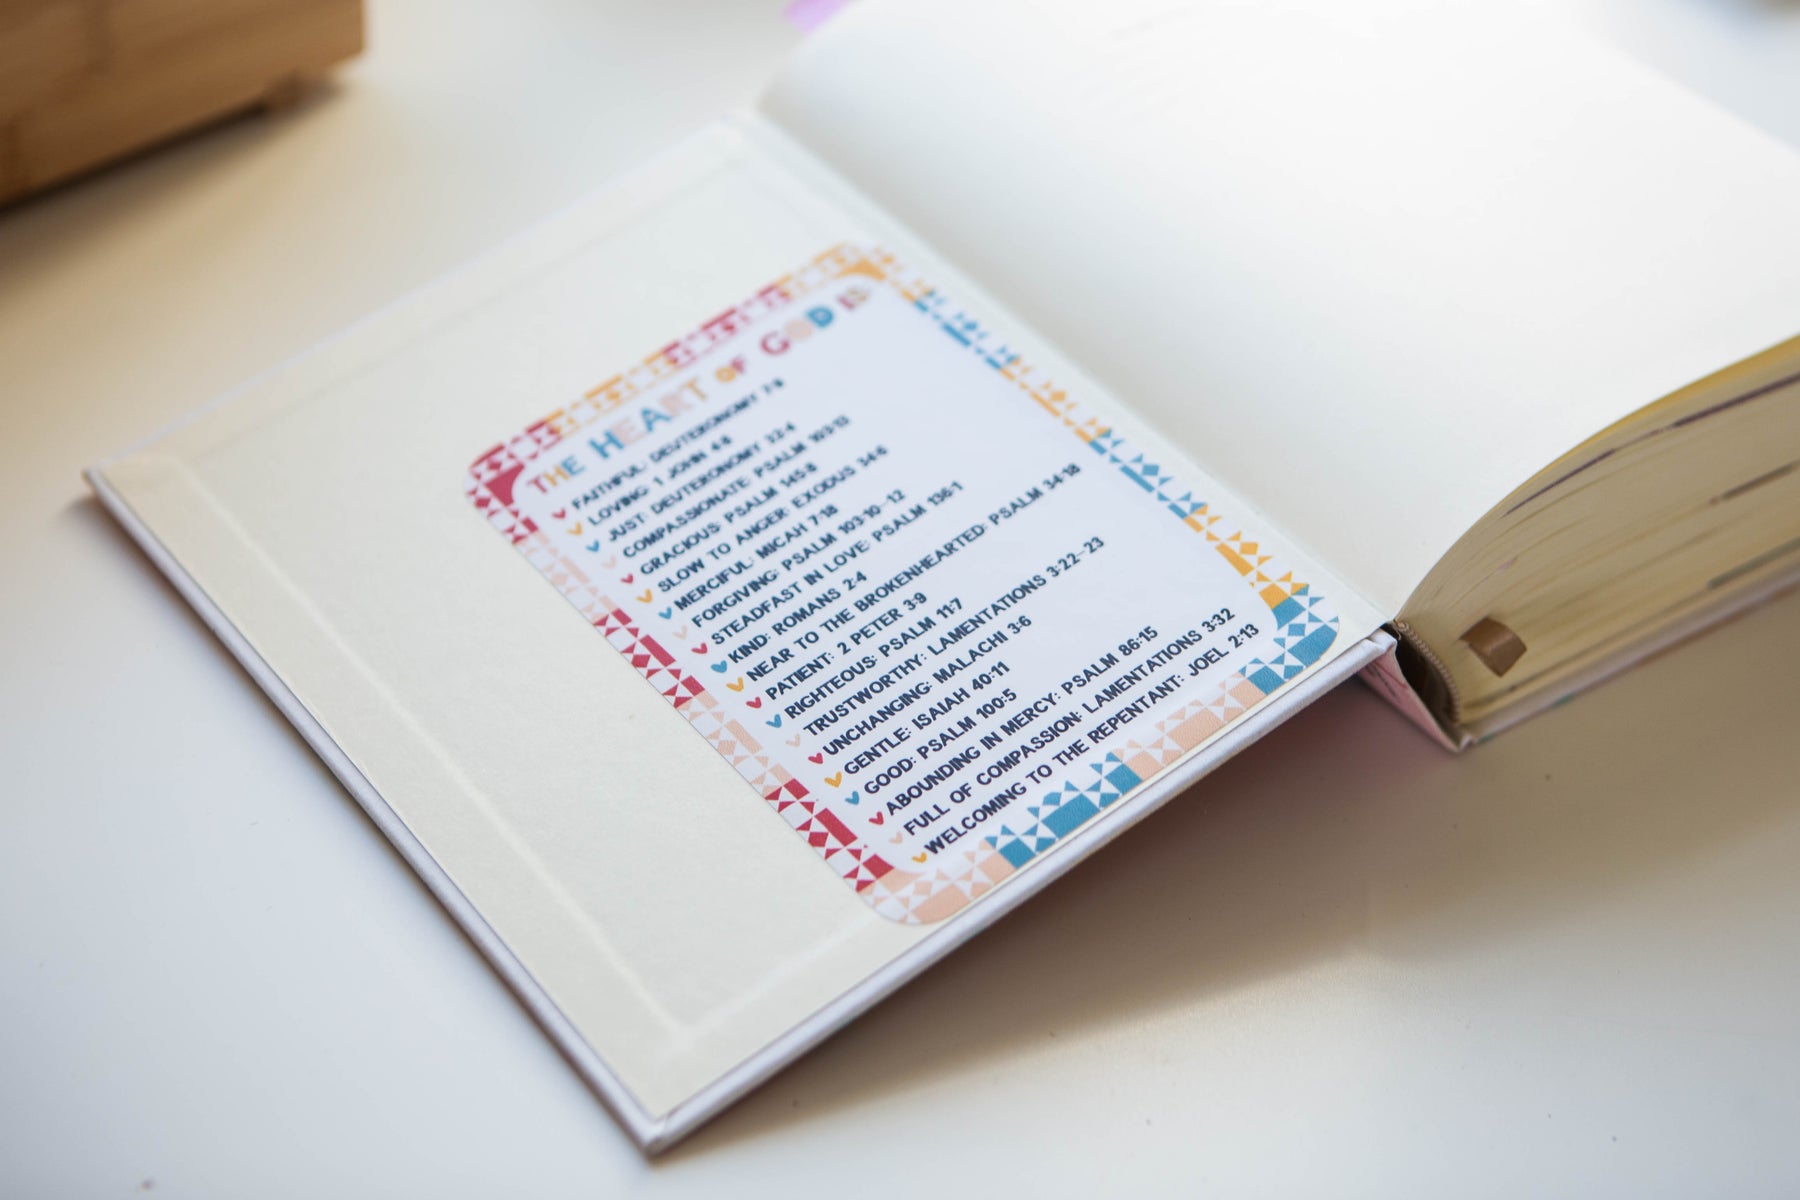 THE HEART OF GOD IS
FAITHFUL: DEUTERONOMY 7:9
LOVING: 1 JOHN 4:8
JUST: DEUTERONOMY 32:4
COMPASSIONATE: PSALM 103:13
GRACIOUS: PSALM 145:8
SLOW TO ANGER: EXODUS 34:6
MERCIFUL: MICAH 7:18
FORGIVING: PSALM 103:10-12
STEADFAST IN LOVE: PSALM 136:1
KIND: ROMANS 2:4
NEAR TO THE BROKENHEARTED: PSALM 34:18
PATIENT: 2 PETER 3:9
RIGHTEOUS: PSALM 11:7
TRUSTWORTHY: LAMENTATIONS 3:22-23
UNCHANGING: MALACHI 3:6
GENTLE: ISAIAH 40:11
GOOD: PSALM 100:5
ABOUNDING IN MERCY: PSALM 86:15
FULL OF COMPASSION: LAMENTATIONS 3:32
WELCOMING TO THE REPENTANT: JOEL 2:13